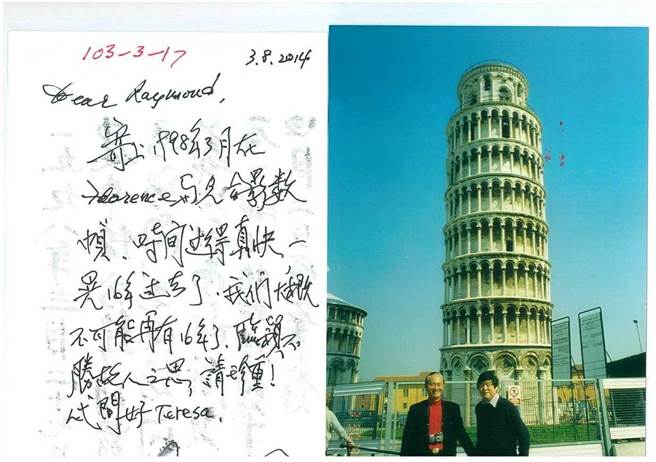 103-3-17
3.8.2014
Dear Raymond,
寄上1998年3月在
Florence与兄合影數
幀、時间过得真快、一
晃16年过去了、我们大概
不可能再有16年了、臨穎不
勝故人之思，請珍重！
代問好 Teresa.